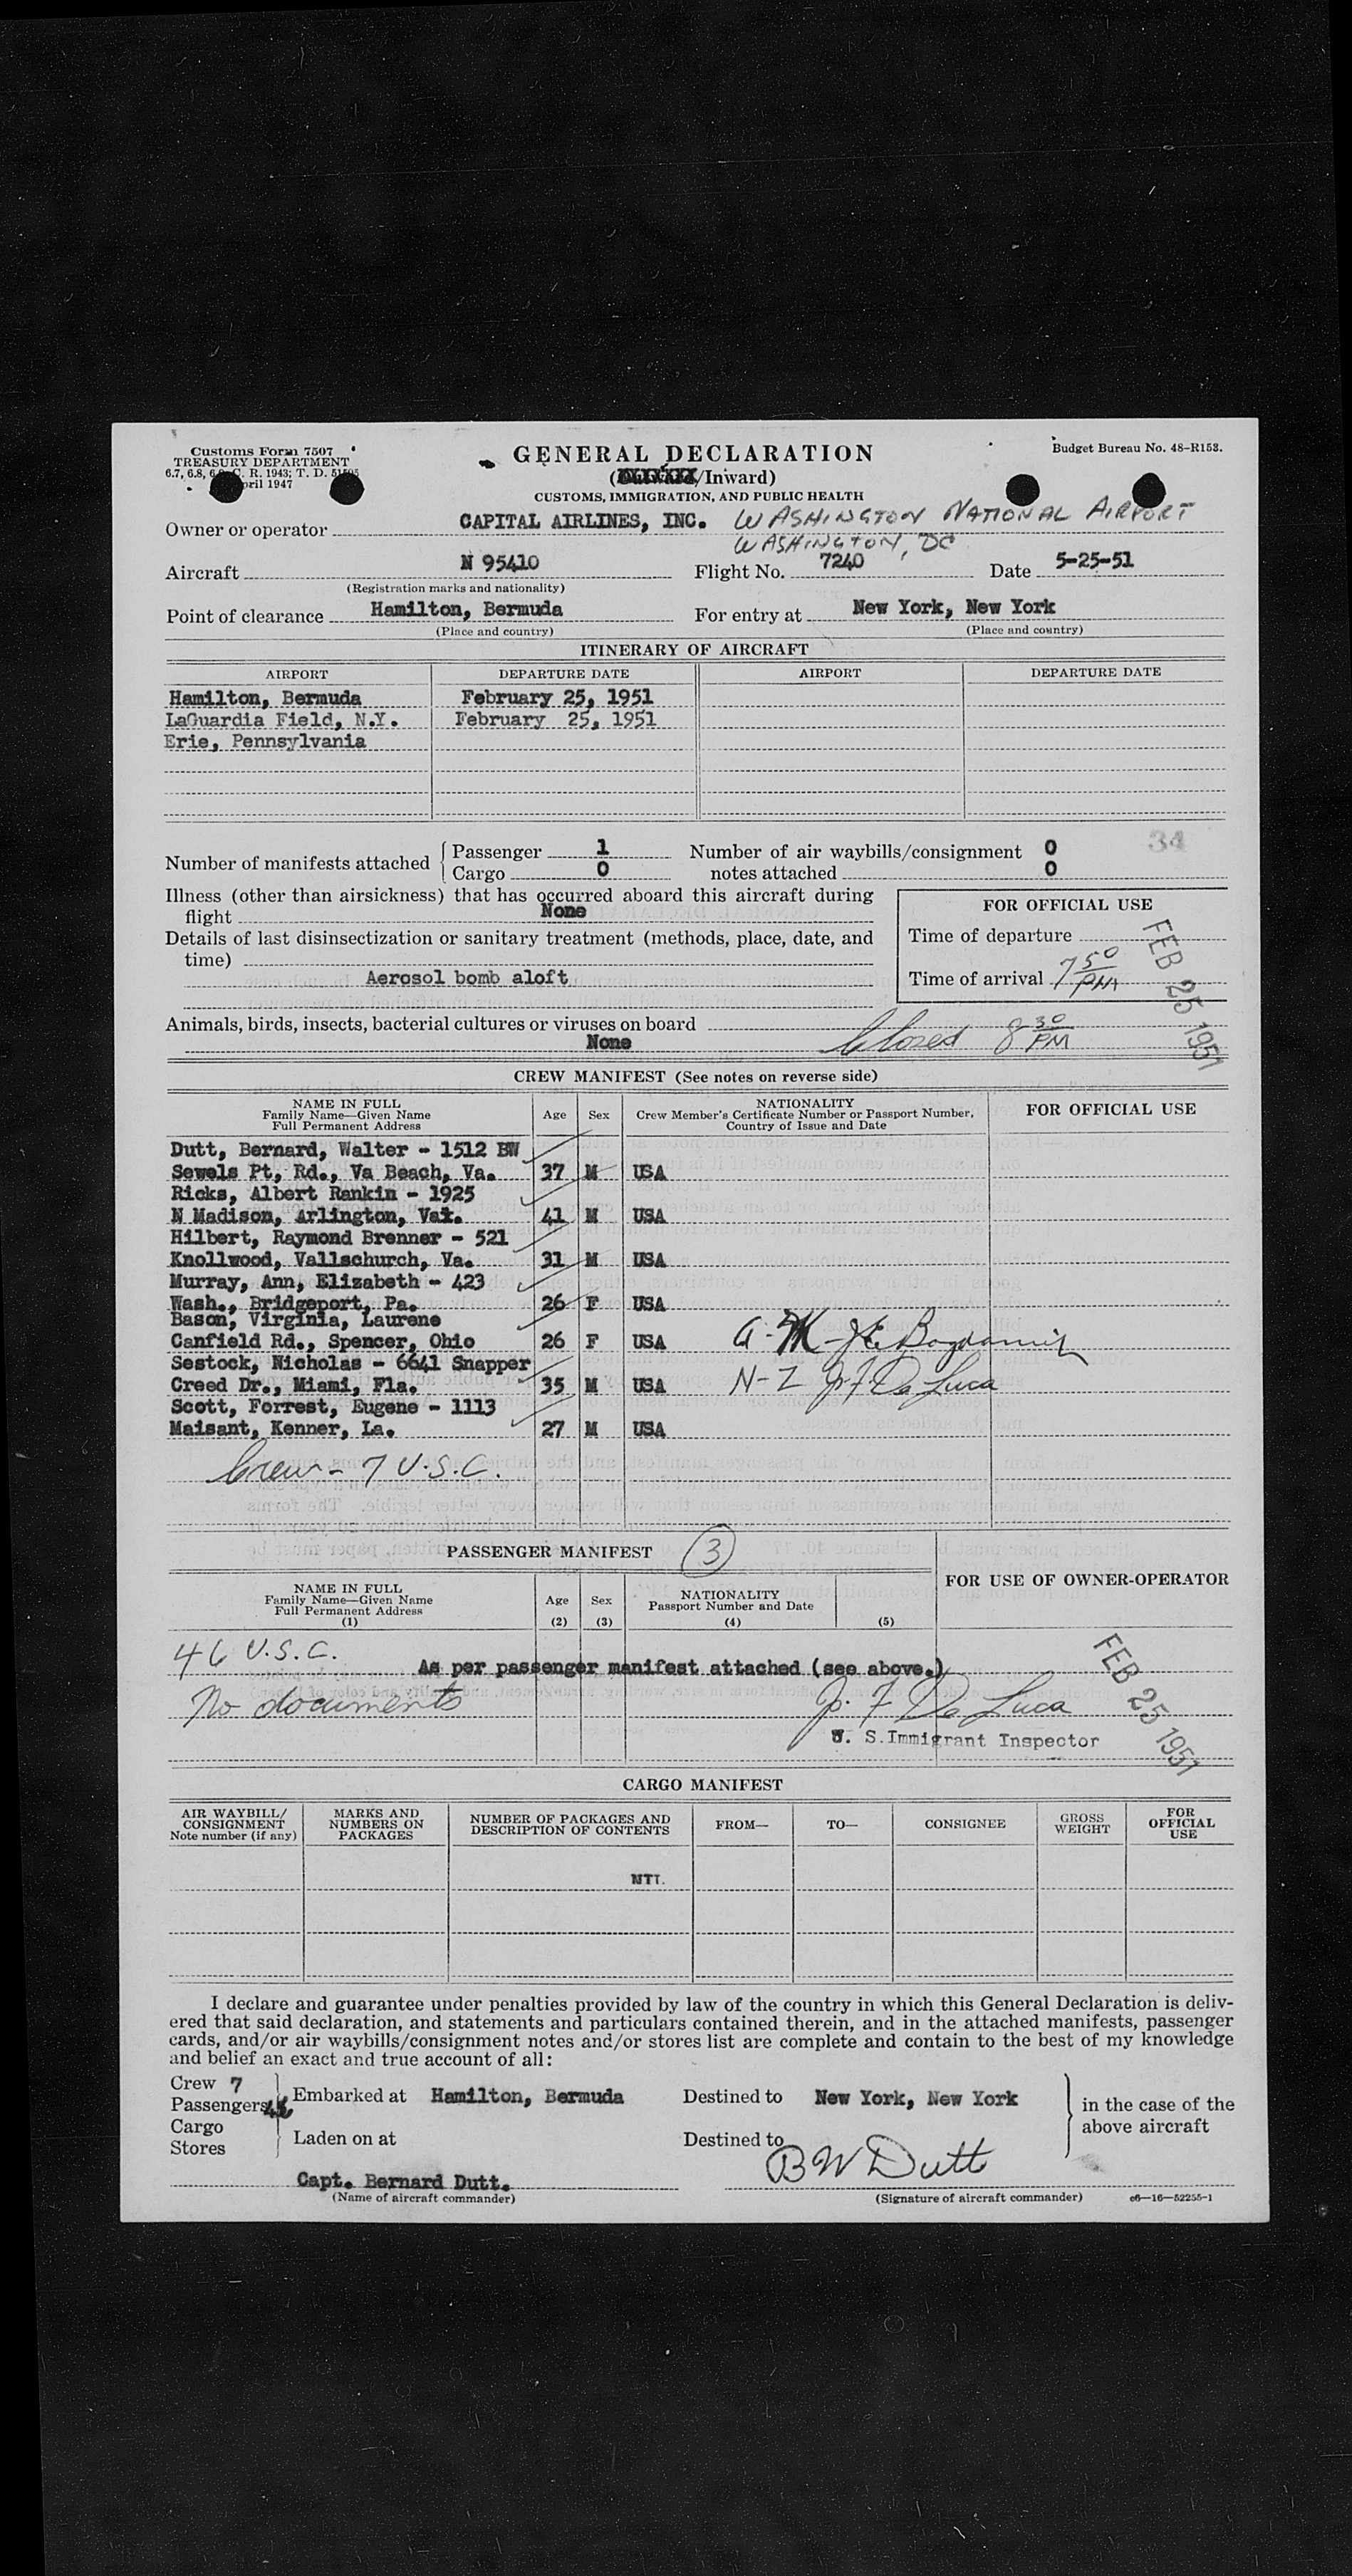 Customs Form 7507
TREASURY DEPARTMENT
6.7, 6.8, C. R. 1943; T. D.
April 1947
GENERAL DECLARATION
/Inward)
CUSTOMS, IMMIGRATION, AND PUBLIC HEALTH
Budget Bureau No. 48-R153.
Owner or operator CAPITAL AIRLINES, INC. WASHINGTON NATIONAL AIRPORT
WASHINGTON, DC
Aircraft N 95410 Flight No. 7240 Date 5-25-51
(Registration marks and nationality)
Point of clearance Hamilton, Bermuda For entry at New York, New York
(Place and country) (Place and country)
ITINERARY OF AIRCRAFT
AIRPORT DEPARTURE DATE AIRPORT DEPARTURE DATE
Hamilton, Bermuda February 25, 1951
LaGuardia Field, N.Y. February 25, 1951
Erie, Pennsylvania
34
Number of manifests attached Passenger 1 Number of air waybills/consignment 0
Cargo 0 notes attached 0
Illness (other than airsickness) that has occurred aboard this aircraft during
flight None
Details of last disinsectization or sanitary treatment (methods, place, date, and
time)
Aerosol bomb aloft
FOR OFFICIAL USE
Time of departure
Time of arrival 7 50 PM
FEB 25 1951
Animals, birds, insects, bacterial cultures or viruses on board
None
Closed 8 30 PM
CREW MANIFEST (See notes on reverse side)
NAME IN FULL
Family Name—Given Name
Full Permanent Address
Age Sex
NATIONALITY
Crew Member's Certificate Number or Passport Number,
Country of Issue and Date
FOR OFFICIAL USE
Dutt, Bernard, Walter - 1512 BW
Sewels Pt, Rd., Va Beach, Va. 37 M USA
Ricks, Albert Rankin - 1925
N Madison, Arlington, 41 M USA
Hilbert, Raymond Brenner - 521
Knollwood, Vallschurch, Va. 31 M USA
Murray, Ann, Elizabeth - 423
Wash., Bridgeport, Pa. 26 F USA
Bason, Virginia, Laurene
Canfield Rd., Spencer, Ohio 26 F USA
Sestock, Nicholas - 6641 Snapper
Creed Dr., Miami, Fla. 35 M USA N-Z J. F. De Luca
Scott, Forrest, Eugene - 1113
Maisant, Kenner, La. 27 M USA
Crew - 7 U.S.C.
PASSENGER MANIFEST 3
NAME IN FULL
Family Name—Given Name
Full Permanent Address
(1)
Age
(2)
Sex
(3)
NATIONALITY
Passport Number and Date
(4)
(5)
FOR USE OF OWNER-OPERATOR
46 U.S.C.
As per passenger manifest attached (see above.)
No documents J. F. De Luca
U. S. Immigrant Inspector
FEB 25 1951
CARGO MANIFEST
AIR WAYBILL/
CONSIGNMENT
Note number (if any)
MARKS AND
NUMBERS ON
PACKAGES
NUMBER OF PACKAGES AND
DESCRIPTION OF CONTENTS
FROM—
TO—
CONSIGNEE
GROSS
WEIGHT
FOR
OFFICIAL
USE
I declare and guarantee under penalties provided by law of the country in which this General Declaration is deliv-
ered that said declaration, and statements and particulars contained therein, and in the attached manifests, passenger
cards, and/or air waybills/consignment notes and/or stores list are complete and contain to the best of my knowledge
and belief an exact and true account of all:
Crew 7
Passengers
Cargo
Stores
Embarked at Hamilton, Bermuda Destined to New York, New York
Laden on at Destined to
in the case of the
above aircraft
Capt. Bernard Dutt. BW Dutt
(Name of aircraft commander) (Signature of aircraft commander) c6—16—52255-1